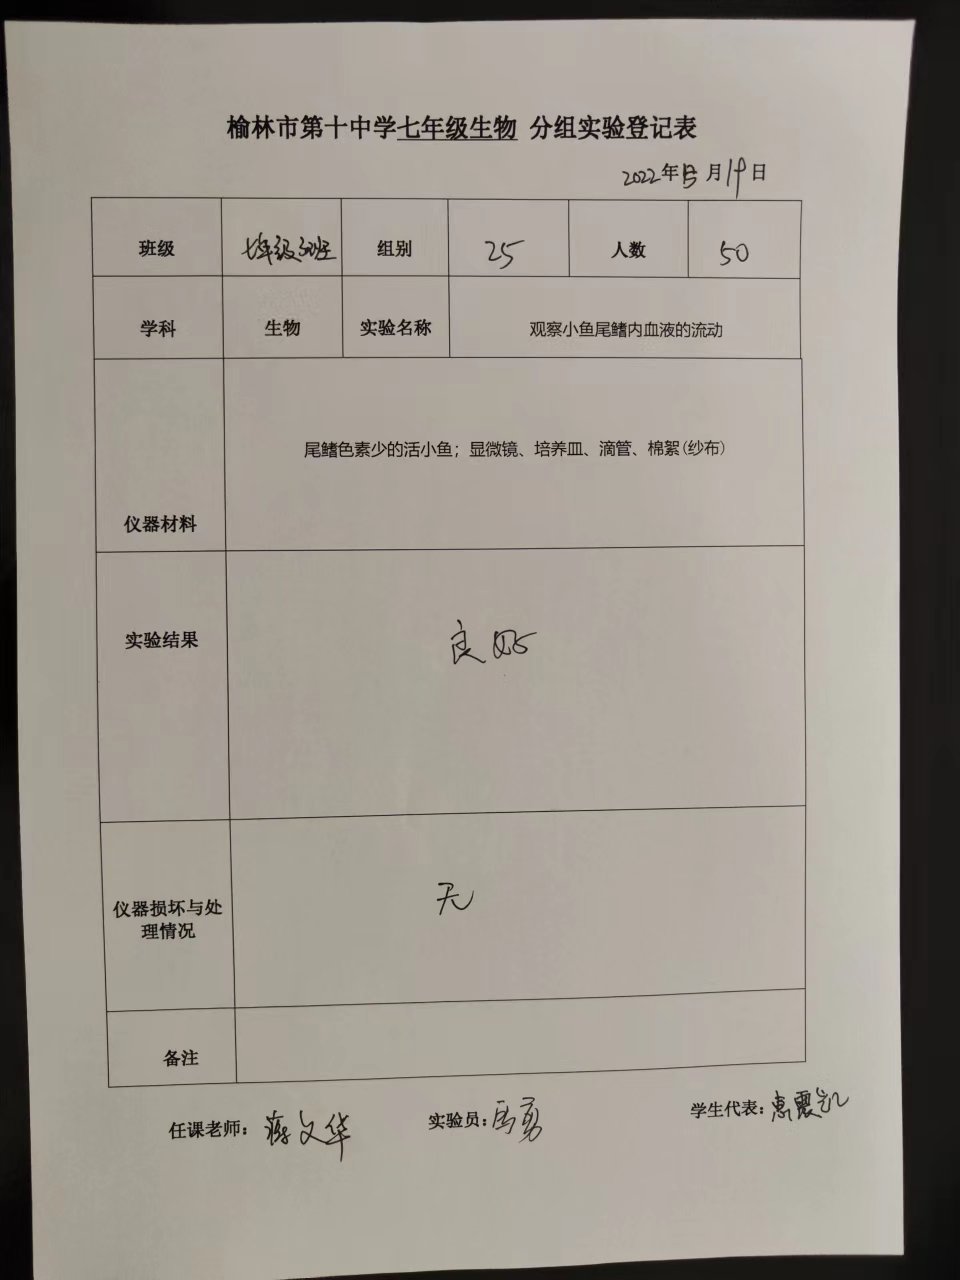 榆林市第十中学七年级生物 分组实验登记表
2022年 月19日
班级 七年级 班 组别 25 人数 50
学科 生物 实验名称 观察小鱼尾鳍内血液的流动
尾鳍色素少的活小鱼；显微镜、培养皿、滴管、棉絮(纱布)
仪器材料
实验结果 良好
仪器损坏与处
理情况
无
备注
任课老师：蒋文华 实验员：马勇 学生代表：惠震